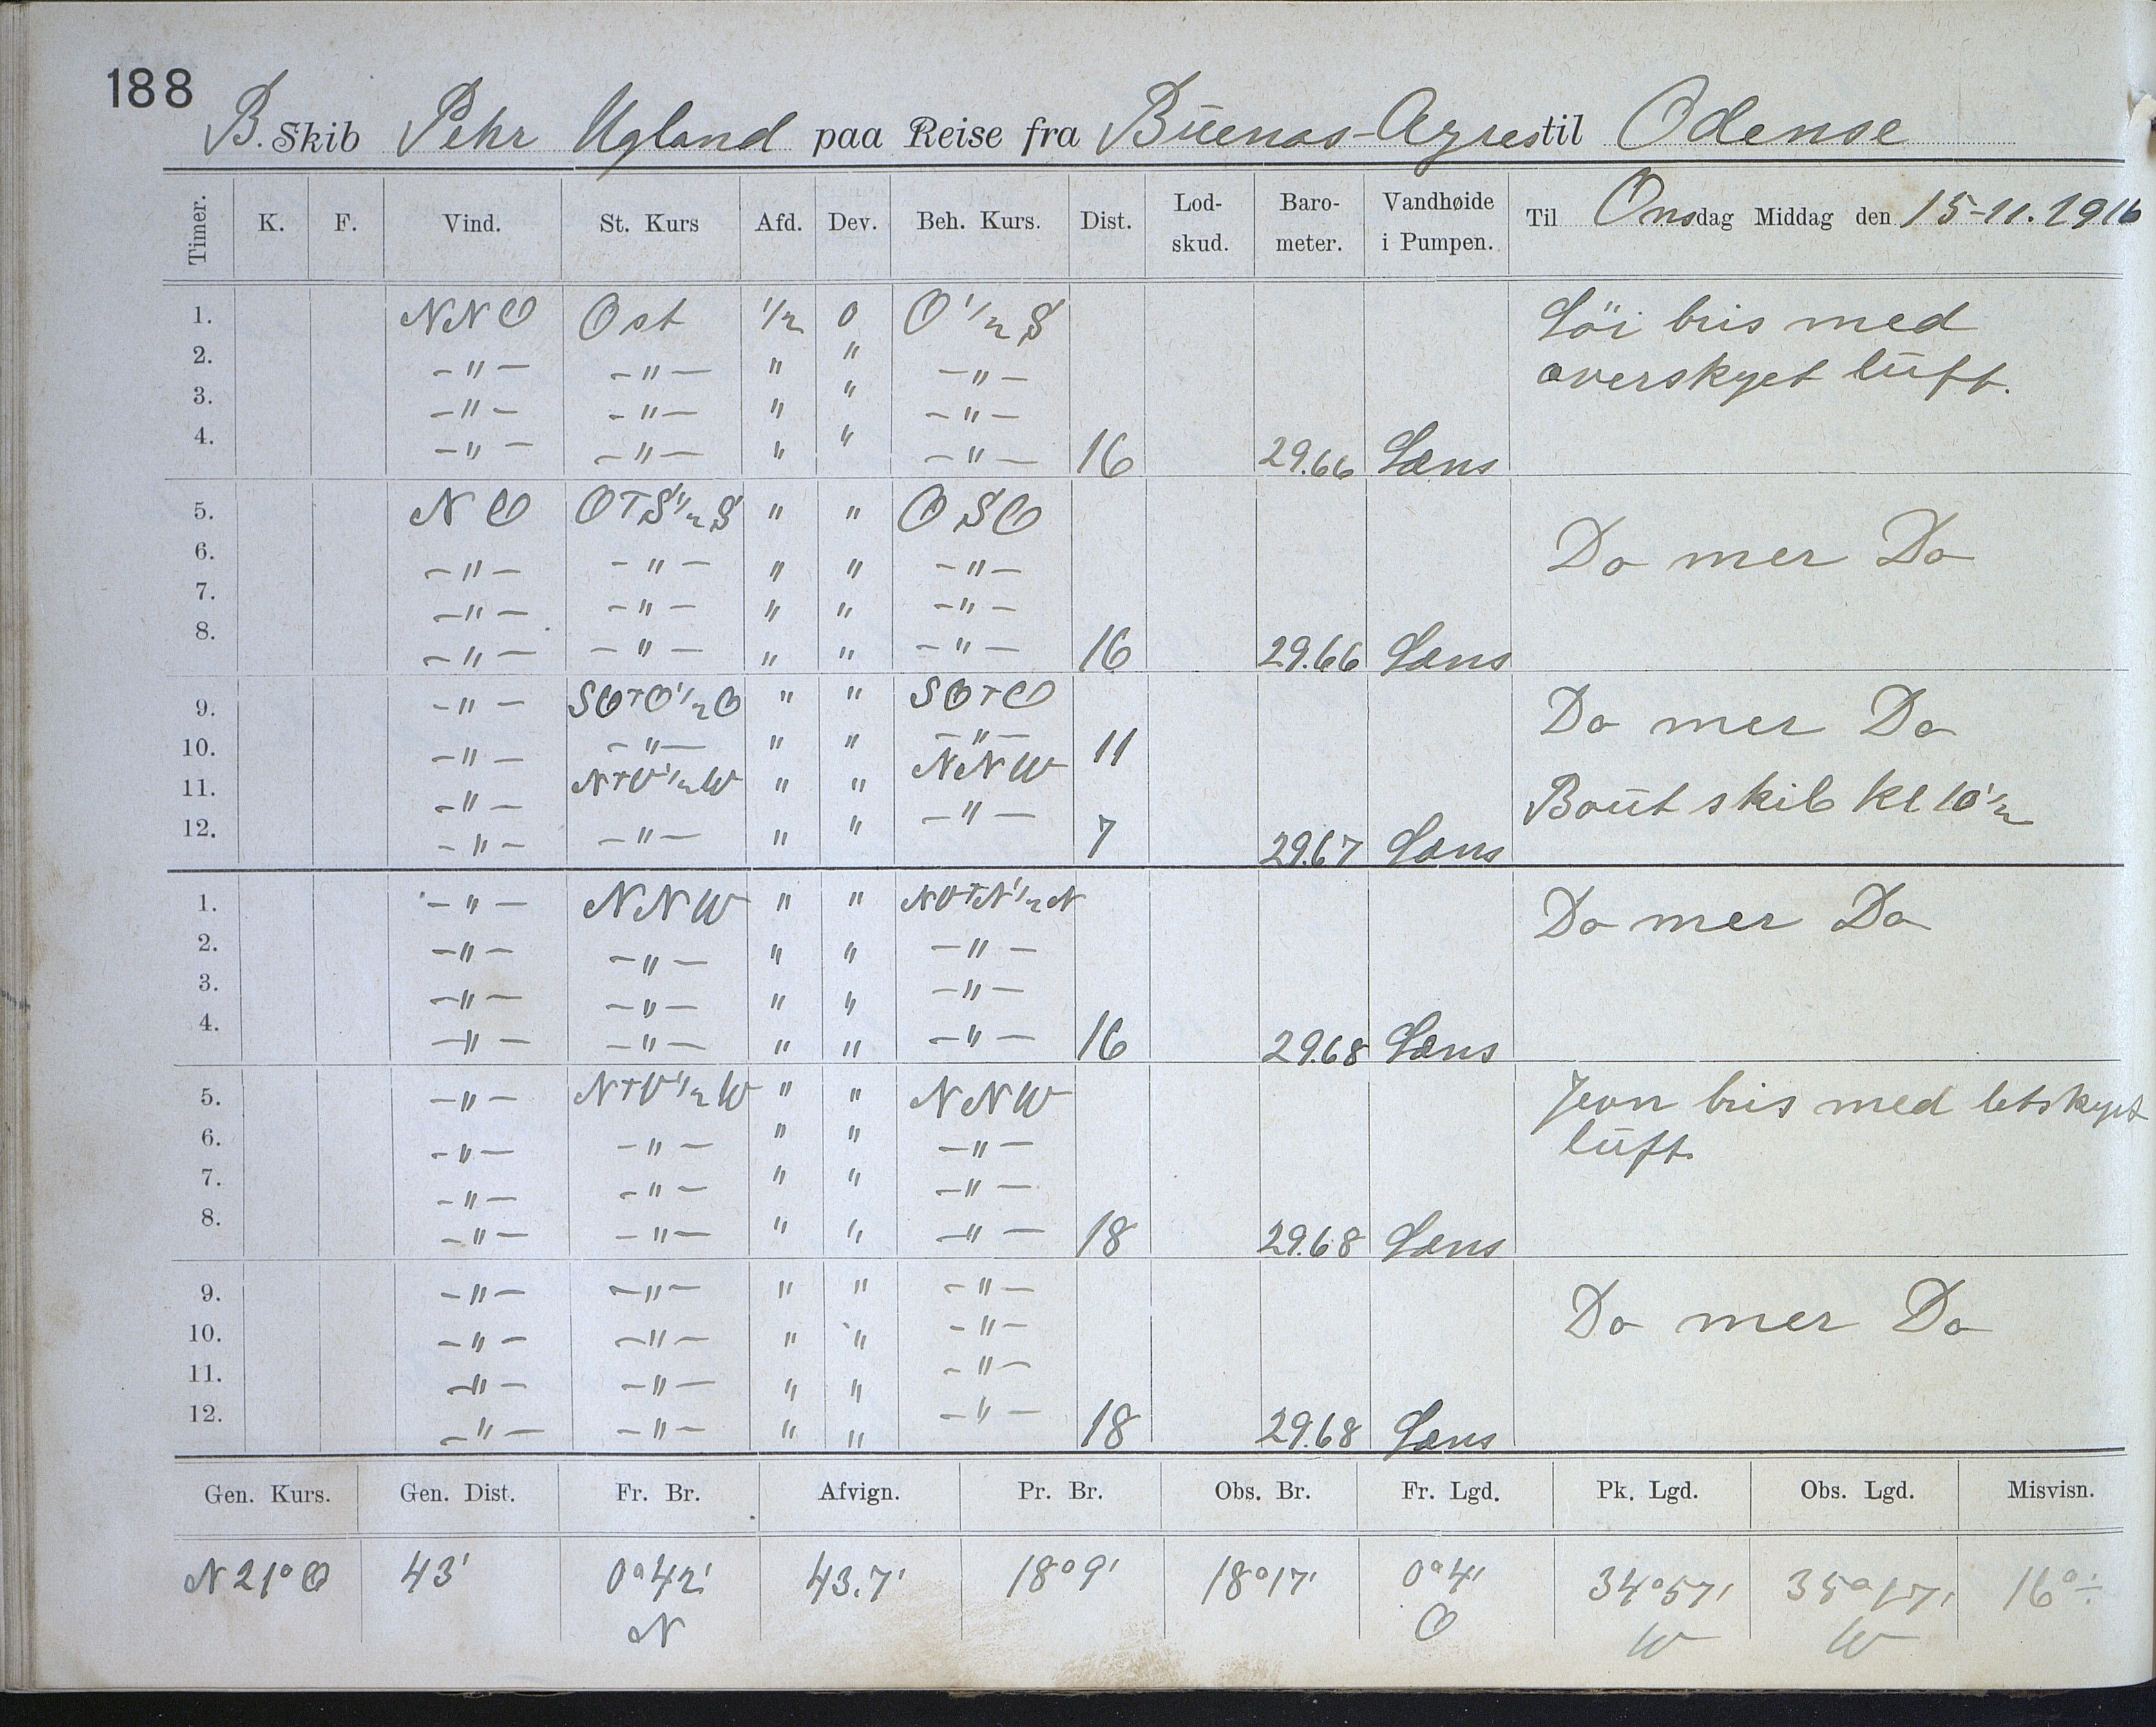 188
B. Skib Pehr Ugland paa Reise fra Buenas-Ayres til Odense
Timer. K. F. Vind. St. Kurs Afd. Dev. Beh. Kurs. Dist. Lod-skud. Baro-meter. Vandhøide i Pumpen. Til Onsdag Middag den 15-11.1916
1. NNO Ost 1/2 0 O 1/2 S Löi bris med
2. -"- -"- " " -"- overskyet lüft.
3. -"- -"- " " -"-
4. -"- -"- " " -"- 16 29.66 Læns
5. NO OTS 1/2 S " " OSO Do mer Do
6. -"- -"- " " -"-
7. -"- -"- " " -"-
8. -"- -"- " " -"- 16 29.66 Læns
9. -"- SOTO 1/2 O " " SOTO Do mer Do
10. -"- -"- " " -"- 11
11. -"- NTV 1/2 W " " NNW Boüt skib Kl 10 1/2
12. -"- -"- " " -"- 7 29.67 Læns
1. -"- NNW " " NVTN 1/2 N Do mer Do
2. -"- -"- " " -"-
3. -"- -"- " " -"-
4. -"- -"- " " -"- 16 29.68 Læns
5. -"- NTV 1/2 W " " NNW Jevn bris med letskyet
6. -"- -"- " " -"- lüft.
7. -"- -"- " " -"-
8. -"- -"- " " -"- 18 29.68 Læns
9. -"- -"- " " -"- Do mer Do
10. -"- -"- " " -"-
11. -"- -"- " " -"-
12. -"- -"- " " -"- 18 29.68 Læns
Gen. Kurs. Gen. Dist. Fr. Br. Afvign. Pr. Br. Obs. Br. Fr. Lgd. Pk. Lgd. Obs. Lgd. Misvisn.
N 21° O 43' 0°42' 43.7' 18°9' 18°17' 0°4' 34°57' 35°17' 16° ÷
N O W W